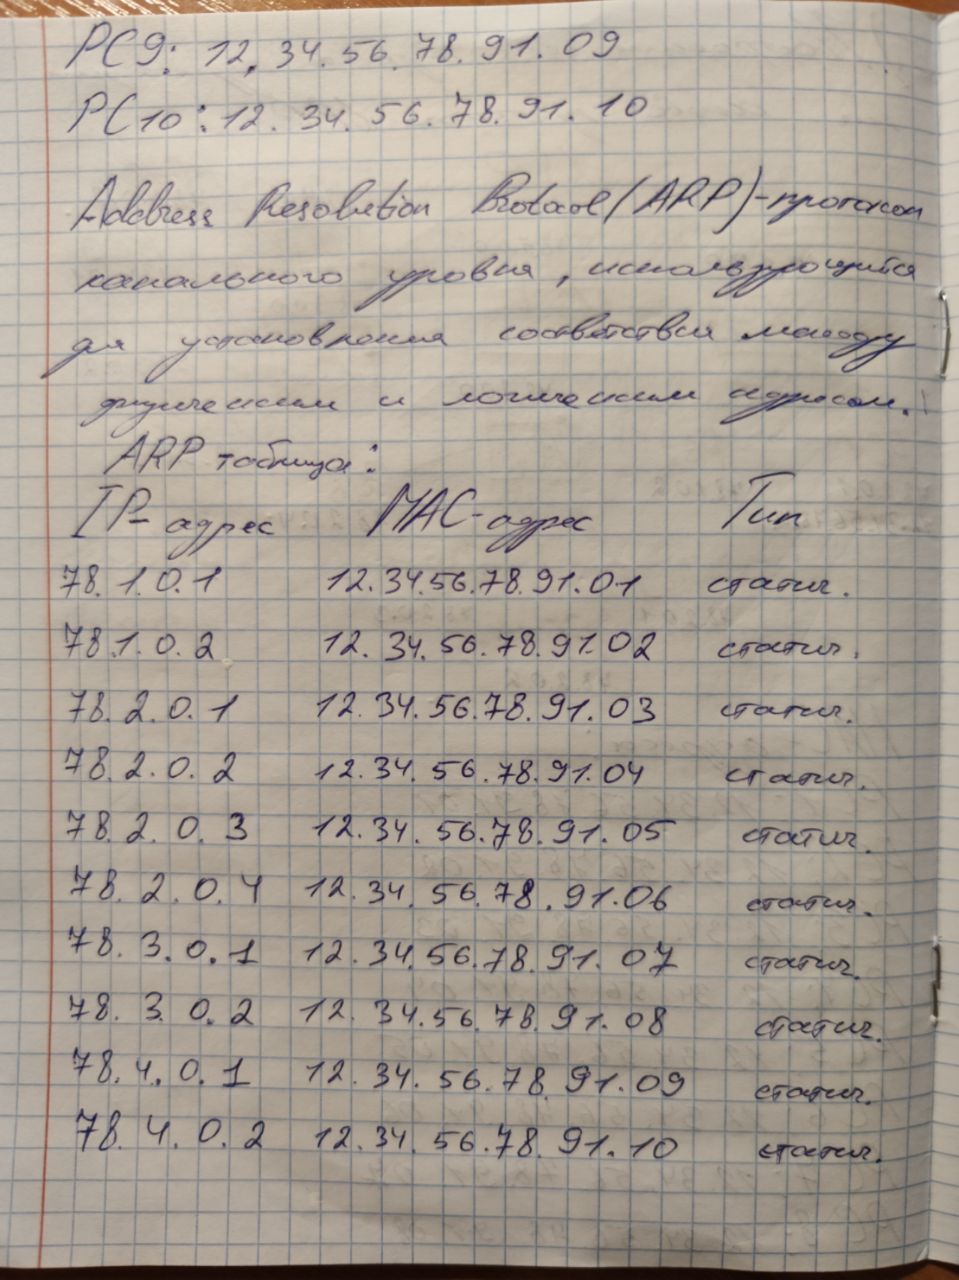 PC9: 12.34.56.78.91.09
PC10: 12.34.56.78.91.10
Address Resolution Protocol (ARP) - протокол
канального уровня, использующийся
для установления соответствия между
физическим и логическим адресом.
ARP таблица:
IP-адрес MAC-адрес Тип
78.1.0.1 12.34.56.78.91.01 статич.
78.1.0.2 12.34.56.78.91.02 статич.
78.2.0.1 12.34.56.78.91.03 статич.
78.2.0.2 12.34.56.78.91.04 статич.
78.2.0.3 12.34.56.78.91.05 статич.
78.2.0.4 12.34.56.78.91.06 статич.
78.3.0.1 12.34.56.78.91.07 статич.
78.3.0.2 12.34.56.78.91.08 статич.
78.4.0.1 12.34.56.78.91.09 статич.
78.4.0.2 12.34.56.78.91.10 статич.